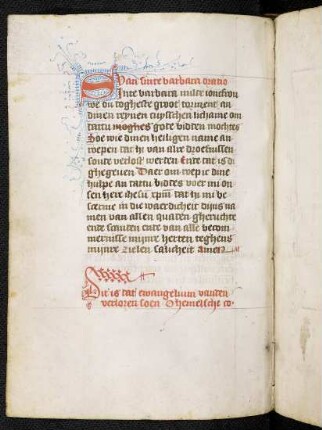 Van sinte barbara oratio
Sinte barbara miter ioncfrou
we du togheste groot torment an
dinen reynen cuysschen lichame om
tattu moghes gote bidden mochtes
Soe wie dinen heiligen name an
wepen tat hi van alre droefnissen
soute verlost werten Ente tat is di
ghegeuen Daer om roepic dine
hulpe an tattu bidtes voer mi on
sen here ihesu xpm tat hi mi be
scerme in die waerdicheit dijns na
men van allen quaten gheruchte
ente scanten ente van alle becom
mernisse mijnre herten teghens
mijnre zielen salicheit Amen
Dit is tat ewangelium van ten
verloren soen Themelsche co